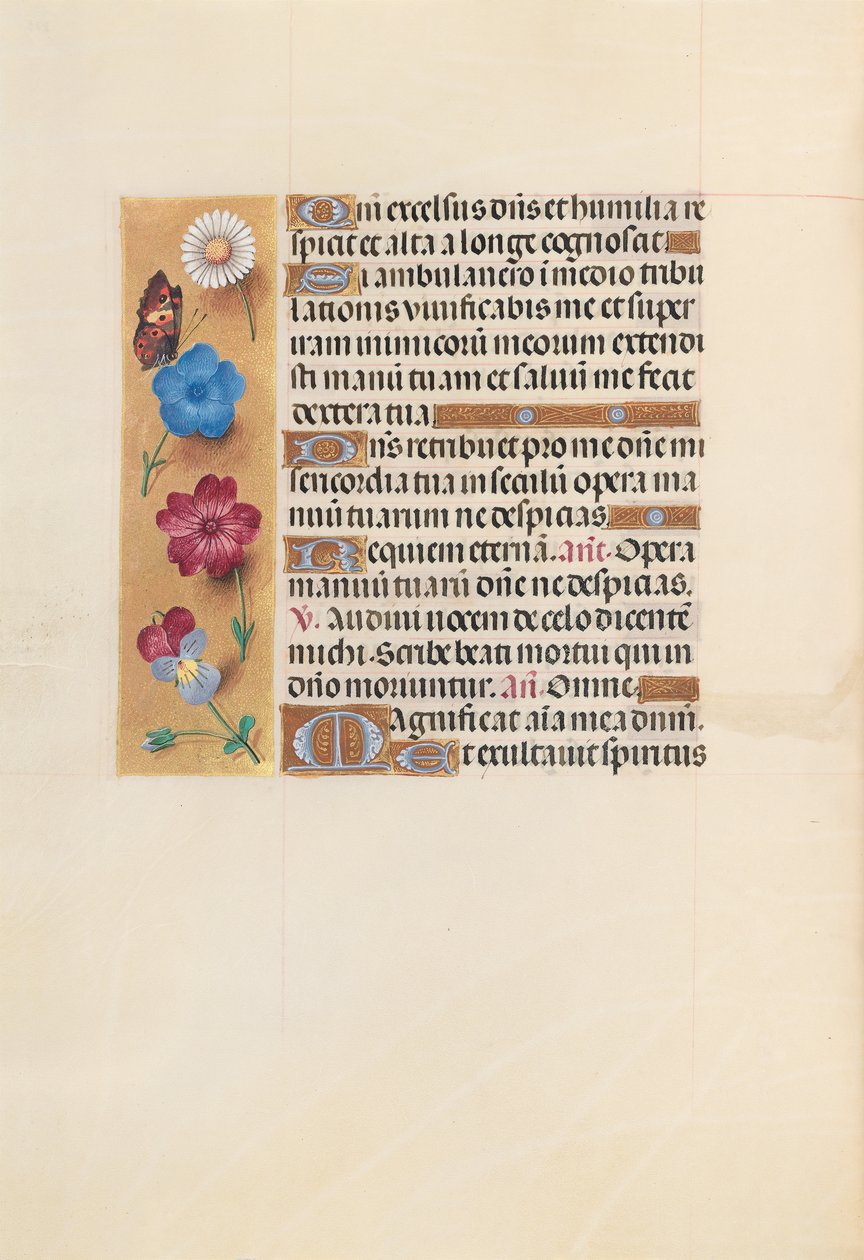 Qm̄ excelsus dn̄s et humilia re
spicit et alta a longe cognoscit.
Si ambulauero ī medio tribu
lationis viuificabis me et super
iram inimicorū meorum extendi
sti manū tuam et saluū me fecit
dextera tua.
Dn̄s retribuet pro me dn̄e mi
sericordia tua in seculū opera ma
nuū tuarum ne despicias.
Requiem eternā. Ant̄. Opera
manuū tuarū dn̄e ne despicias.
V̄. Audiui uocem de celo dicentē
michi. Scribe beati mortui qui in
dn̄o moriuntur. An̄. Omne.
Magnificat aīa mea dnm̄.
Et exultauit sp̄iritus